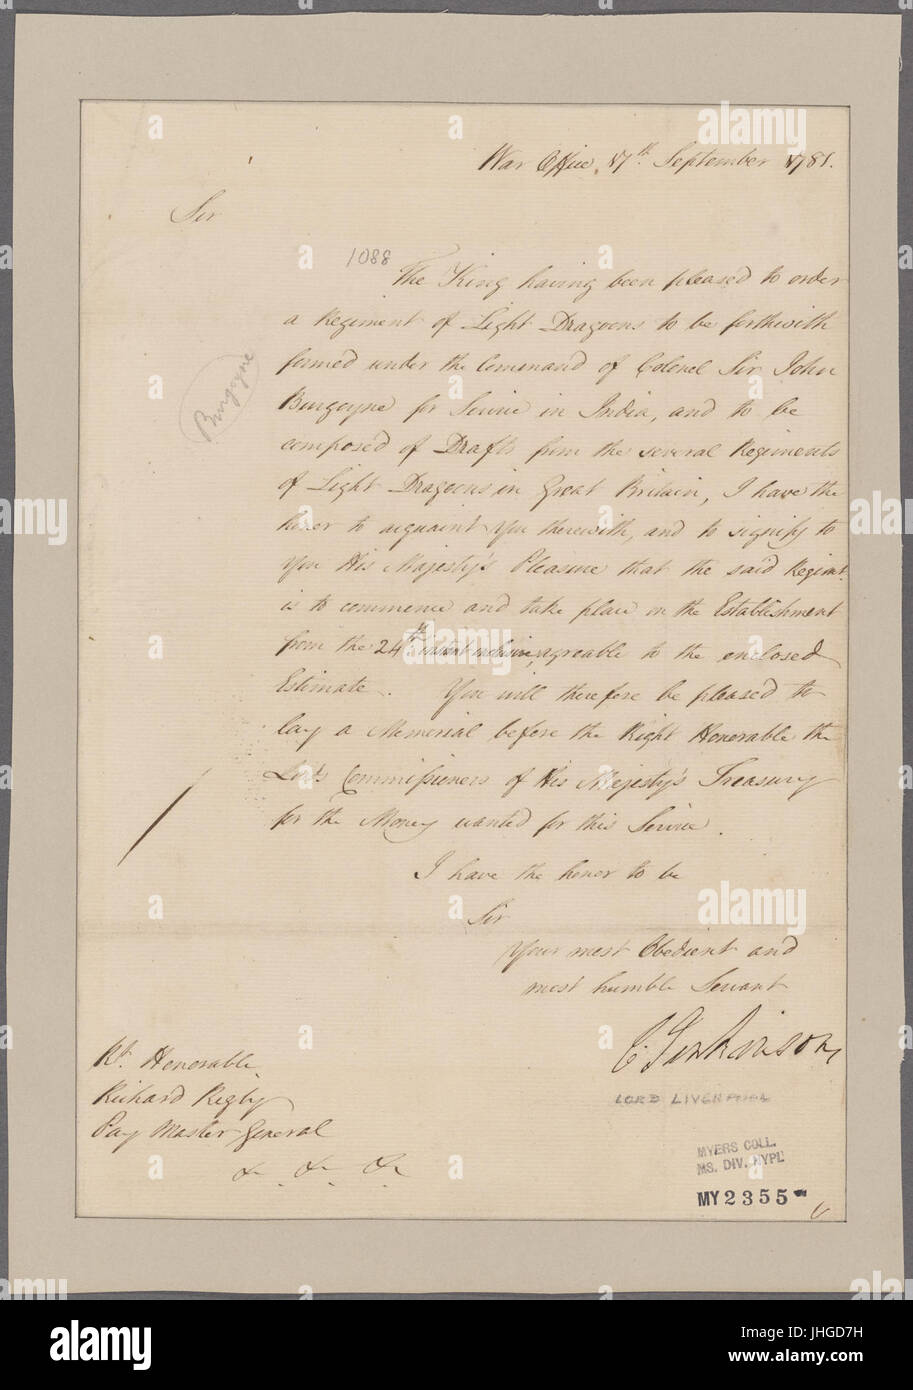 War Office, 17th September 1781.
Sir
1088
The King having been pleased to order
a Regiment of Light Dragoons to be forthwith
formed under the Command of Colonel Sir John
Burgoyne for Service in India, and to be
composed of Drafts from the several Regiments
of Light Dragoons in Great Britain, I have the
honor to acquaint You therewith, and to signify to
You His Majesty's Pleasure that the said Regimt.
is to commence and take place on the Establishment
from the 24th instant inclusive, agreable to the enclosed
Estimate. You will therefore be pleased to
lay a Memorial before the Right Honorable the
Lords Commissioners of His Majesty's Treasury
for the Money wanted for this Service.
I have the honor to be
Sir
Your most Obedient and
most humble Servant
C. Jenkinson
LORD LIVERPOOL
Burgoyne
Rt. Honorable
Richard Rigby
Pay Master General
&. &. &.
MYERS COLL.
MS. DIV. NYPL
MY 2355
alamy
alamy stock photo
JHGD7H
www.alamy.com